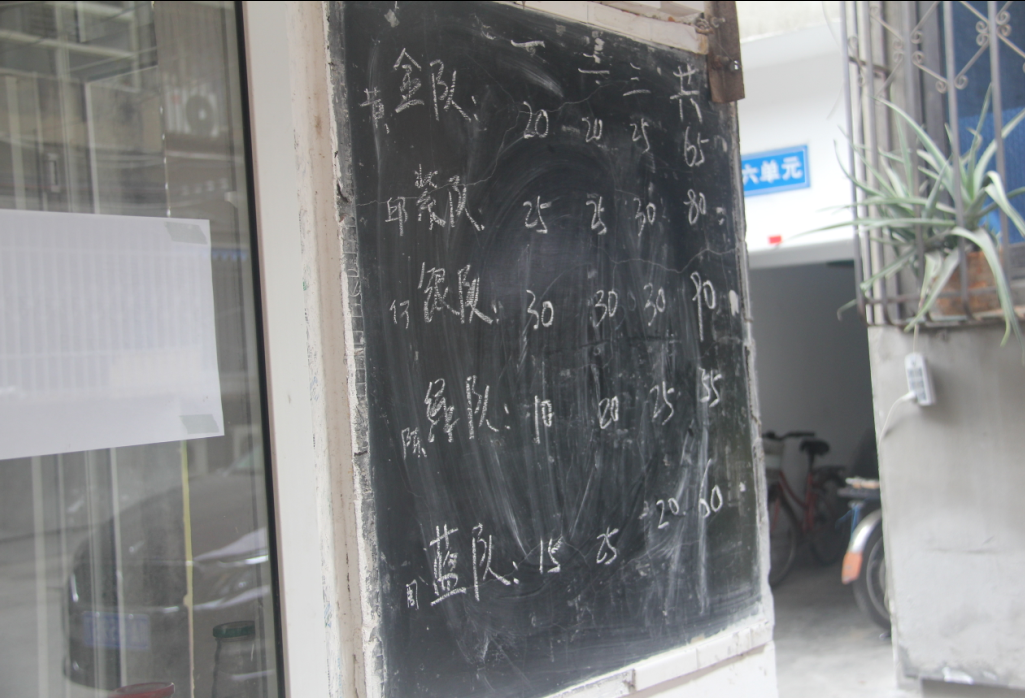 一 二 三 共
黄 金队: 20 20 25 65
邱 紫队: 25 25 30 80
何 银队: 30 30 30 90
陈 绿队: 10 20 25 55
周 蓝队: 15 25 20 60
六单元